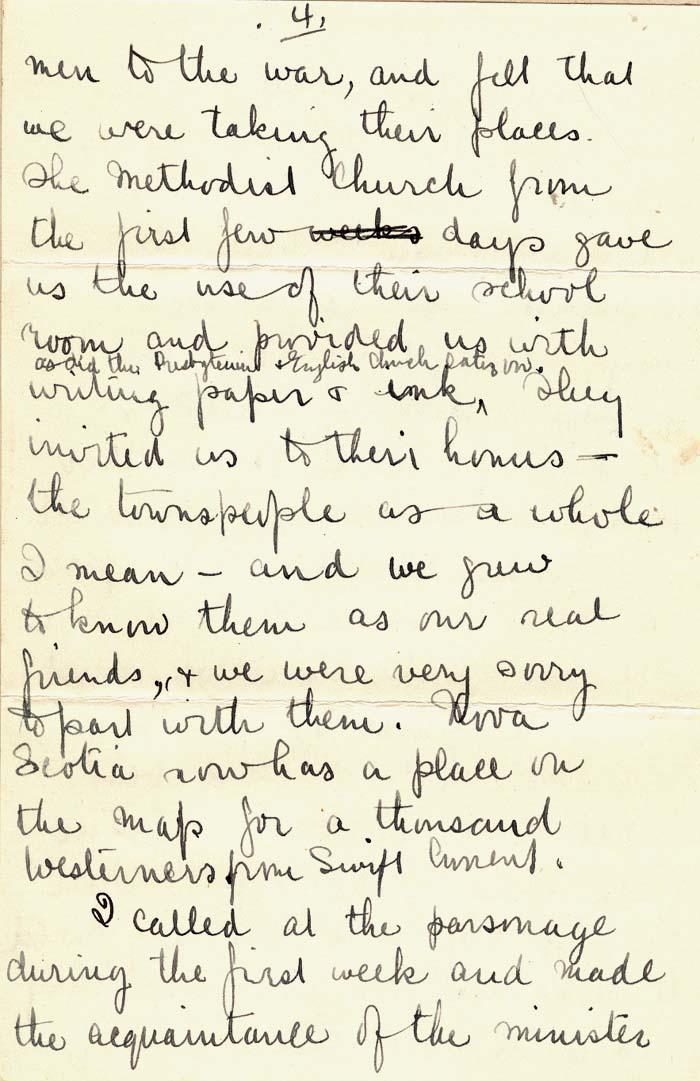 4.
men to the war, and felt that
we were taking their places.
The Methodist Church from
the first few weeks days gave
us the use of their school
room and provided us with
as did the Presbyterian & English Church later on.
writing paper & ink, They
invited us to their homes –
the townspeople as a whole
I mean – and we grew
to know them as our real
friends, & we were very sorry
to part with them. Nova
Scotia now has a place on
the map for a thousand
Westerners from Swift Current.
I called at the parsonage
during the first week and made
the acquaintance of the minister